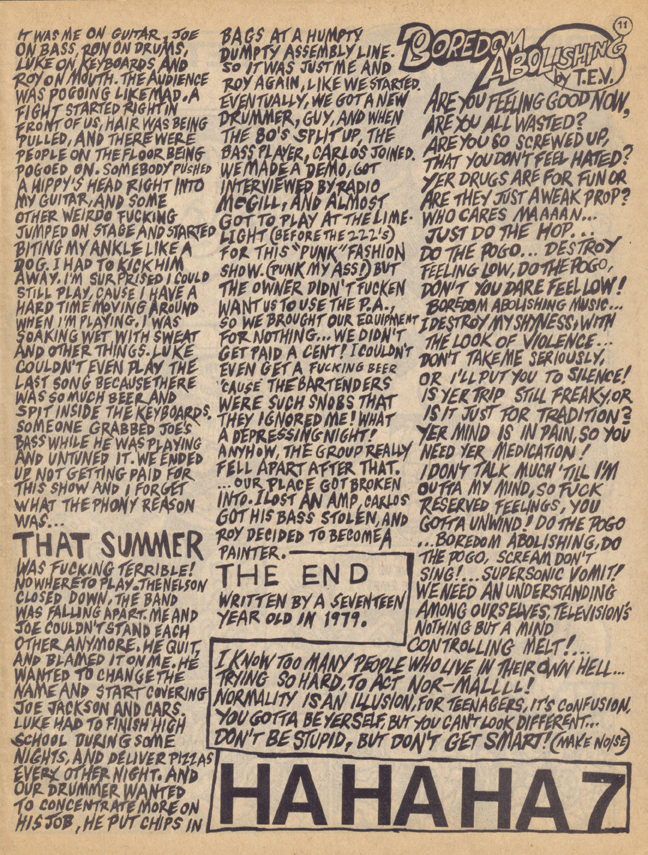 IT WAS ME ON GUITAR, JOE
ON BASS, RON ON DRUMS,
LUKE ON KEYBOARDS, AND
ROY ON MOUTH. THE AUDIENCE
WAS POGOING LIKE MAD. A
FIGHT STARTED RIGHT IN
FRONT OF US, HAIR WAS BEING
PULLED, AND THERE WERE
PEOPLE ON THE FLOOR BEING
POGOED ON. SOMEBODY PUSHED
A HIPPY'S HEAD RIGHT INTO
MY GUITAR, AND SOME
OTHER WEIRDO FUCKING
JUMPED ON STAGE AND STARTED
BITING MY ANKLE LIKE A
DOG. I HAD TO KICK HIM
AWAY. I'M SURPRISED I COULD
STILL PLAY, CAUSE I HAVE A
HARD TIME MOVING AROUND
WHEN I'M PLAYING. I WAS
SOAKING WET WITH SWEAT
AND OTHER THINGS. LUKE
COULDN'T EVEN PLAY THE
LAST SONG BECAUSE THERE
WAS SO MUCH BEER AND
SPIT INSIDE THE KEYBOARDS.
SOMEONE GRABBED JOE'S
BASS WHILE HE WAS PLAYING
AND UNTUNED IT. WE ENDED
UP NOT GETTING PAID FOR
THIS SHOW AND I FORGET
WHAT THE PHONY REASON
WAS...
THAT SUMMER
WAS FUCKING TERRIBLE!
NOWHERE TO PLAY. THE NELSON
CLOSED DOWN, THE BAND
WAS FALLING APART. ME AND
JOE COULDN'T STAND EACH
OTHER ANYMORE. HE QUIT,
AND BLAMED IT ON ME. HE
WANTED TO CHANGE THE
NAME AND START COVERING
JOE JACKSON AND CARS.
LUKE HAD TO FINISH HIGH
SCHOOL DURING SOME
NIGHTS, AND DELIVER PIZZAS
EVERY OTHER NIGHT. AND
OUR DRUMMER WANTED
TO CONCENTRATE MORE ON
HIS JOB, HE PUT CHIPS IN
BAGS AT A HUMPTY
DUMPTY ASSEMBLY LINE.
SO IT WAS JUST ME AND
ROY AGAIN, LIKE WE STARTED.
EVENTUALLY, WE GOT A NEW
DRUMMER, GUY, AND WHEN
THE 80'S SPLIT UP, THE
BASS PLAYER, CARLOS JOINED.
WE MADE A DEMO, GOT
INTERVIEWED BY RADIO
McGILL, AND ALMOST
GOT TO PLAY AT THE LIME-
LIGHT (BEFORE THE 222'S)
FOR THIS "PUNK" FASHION
SHOW. (PUNK MY ASS!) BUT
THE OWNER DIDN'T FUCKEN
WANT US TO USE THE P.A.,
SO WE BROUGHT OUR EQUIPMENT
FOR NOTHING... WE DIDN'T
GET PAID A CENT! I COULDN'T
EVEN GET A FUCKING BEER
'CAUSE THE BARTENDERS
WERE SUCH SNOBS THAT
THEY IGNORED ME! WHAT
A DEPRESSING NIGHT!
ANYHOW, THE GROUP REALLY
FELL APART AFTER THAT.
...OUR PLACE GOT BROKEN
INTO. I LOST AN AMP, CARLOS
GOT HIS BASS STOLEN, AND
ROY DECIDED TO BECOME A
PAINTER.
THE END
WRITTEN BY A SEVENTEEN
YEAR OLD IN 1979.
11
BOREDOM
ABOLISHING
by T.E.V.
ARE YOU FEELING GOOD NOW,
ARE YOU ALL WASTED?
ARE YOU SO SCREWED UP,
THAT YOU DON'T FEEL HATED?
YER DRUGS ARE FOR FUN OR
ARE THEY JUST A WEAK PROP?
WHO CARES MAAAAN...
JUST DO THE HOP...
DO THE POGO... DESTROY
FEELING LOW, DO THE POGO,
DON'T YOU DARE FEEL LOW!
BOREDOM ABOLISHING MUSIC...
I DESTROY MY SHYNESS, WITH
THE LOOK OF VIOLENCE...
DON'T TAKE ME SERIOUSLY,
OR I'LL PUT YOU TO SILENCE!
IS YER TRIP STILL FREAKY, OR
IS IT JUST FOR TRADITION?
YER MIND IS IN PAIN, SO YOU
NEED YER MEDICATION!
I DON'T TALK MUCH 'TILL I'M
OUTTA MY MIND, SO FUCK
RESERVED FEELINGS, YOU
GOTTA UNWIND! DO THE POGO
...BOREDOM ABOLISHING, DO
THE POGO, SCREAM DON'T
SING!... SUPERSONIC VOMIT!
WE NEED AN UNDERSTANDING
AMONG OURSELVES, TELEVISION'S
NOTHING BUT A MIND
CONTROLLING MELT!...
I KNOW TOO MANY PEOPLE WHO LIVE IN THEIR OWN HELL...
TRYING SO HARD, TO ACT NOR-MALLLL!
NORMALITY IS AN ILLUSION, FOR TEENAGERS, IT'S CONFUSION,
YOU GOTTA BE YERSELF, BUT YOU CAN'T LOOK DIFFERENT...
DON'T BE STUPID, BUT DON'T GET SMART! (MAKE NOISE)
HA HA HA 7